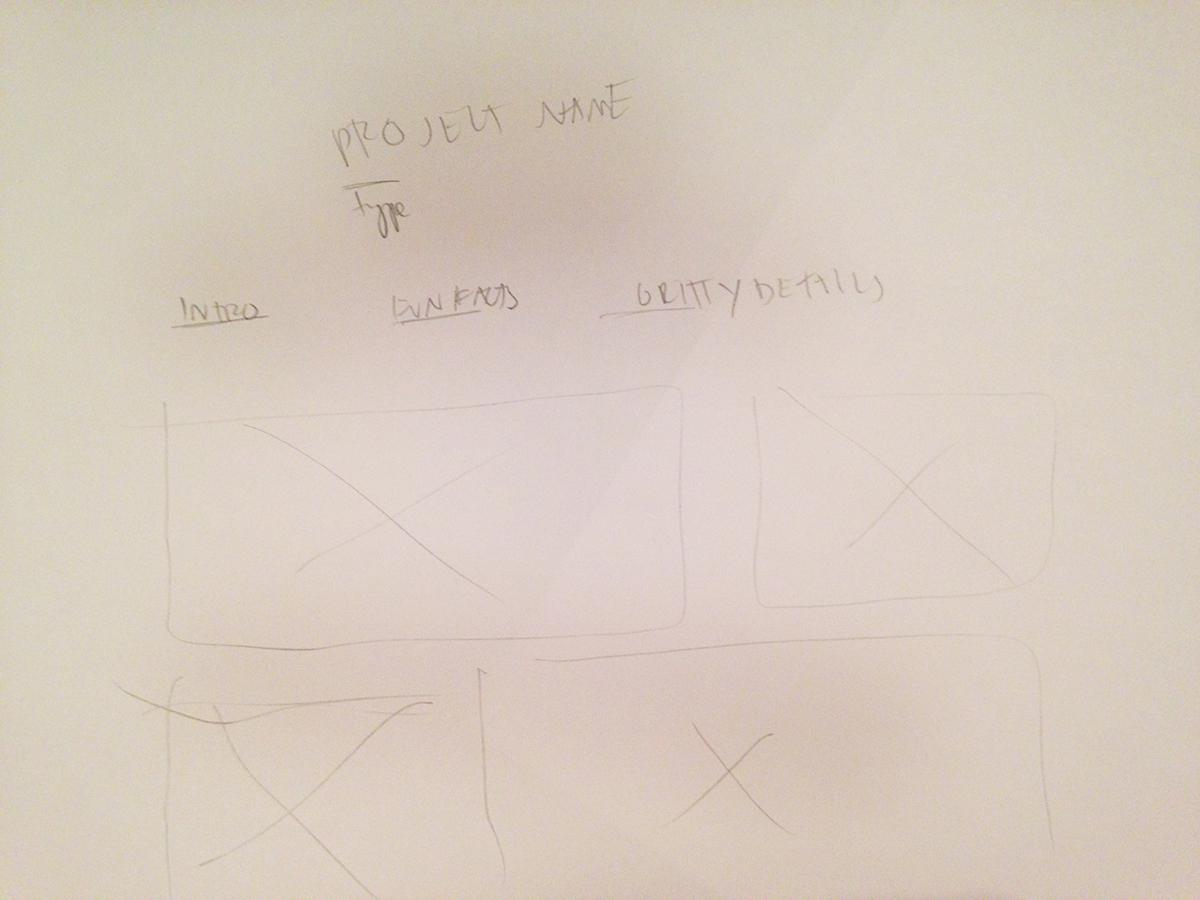 PROJECT NAME
Type
INTRO FUN FACTS GRITTY DETAILS